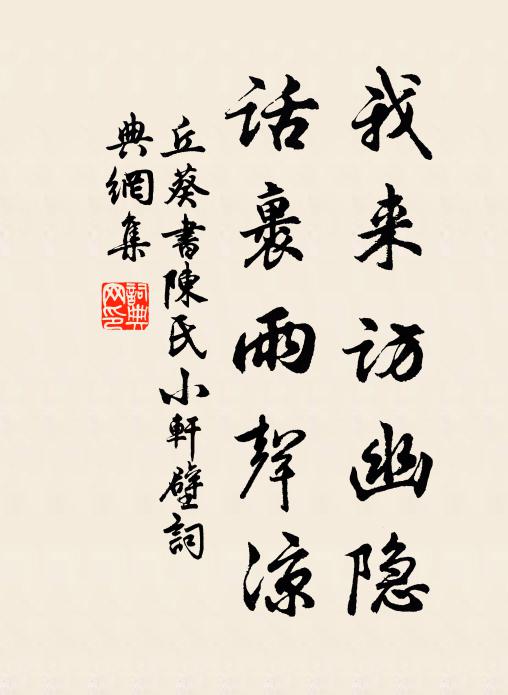 我来访幽隐
话裹雨聲凉
丘葵書陳氏小軒壁詞
典網集
詞典網印